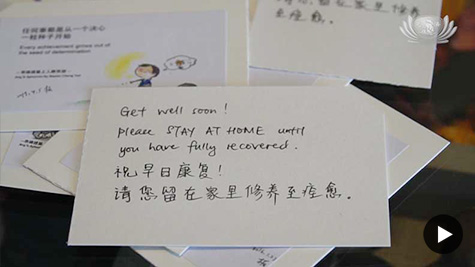 任何事都是从一个决心
一粒种子开始
Every achievement grows out of
the seed of determination
Get well soon!
Please STAY AT HOME until
you have fully recovered.
祝早日康复!
请您留在家里修养至痊愈。
留在家里修养
至痊愈。